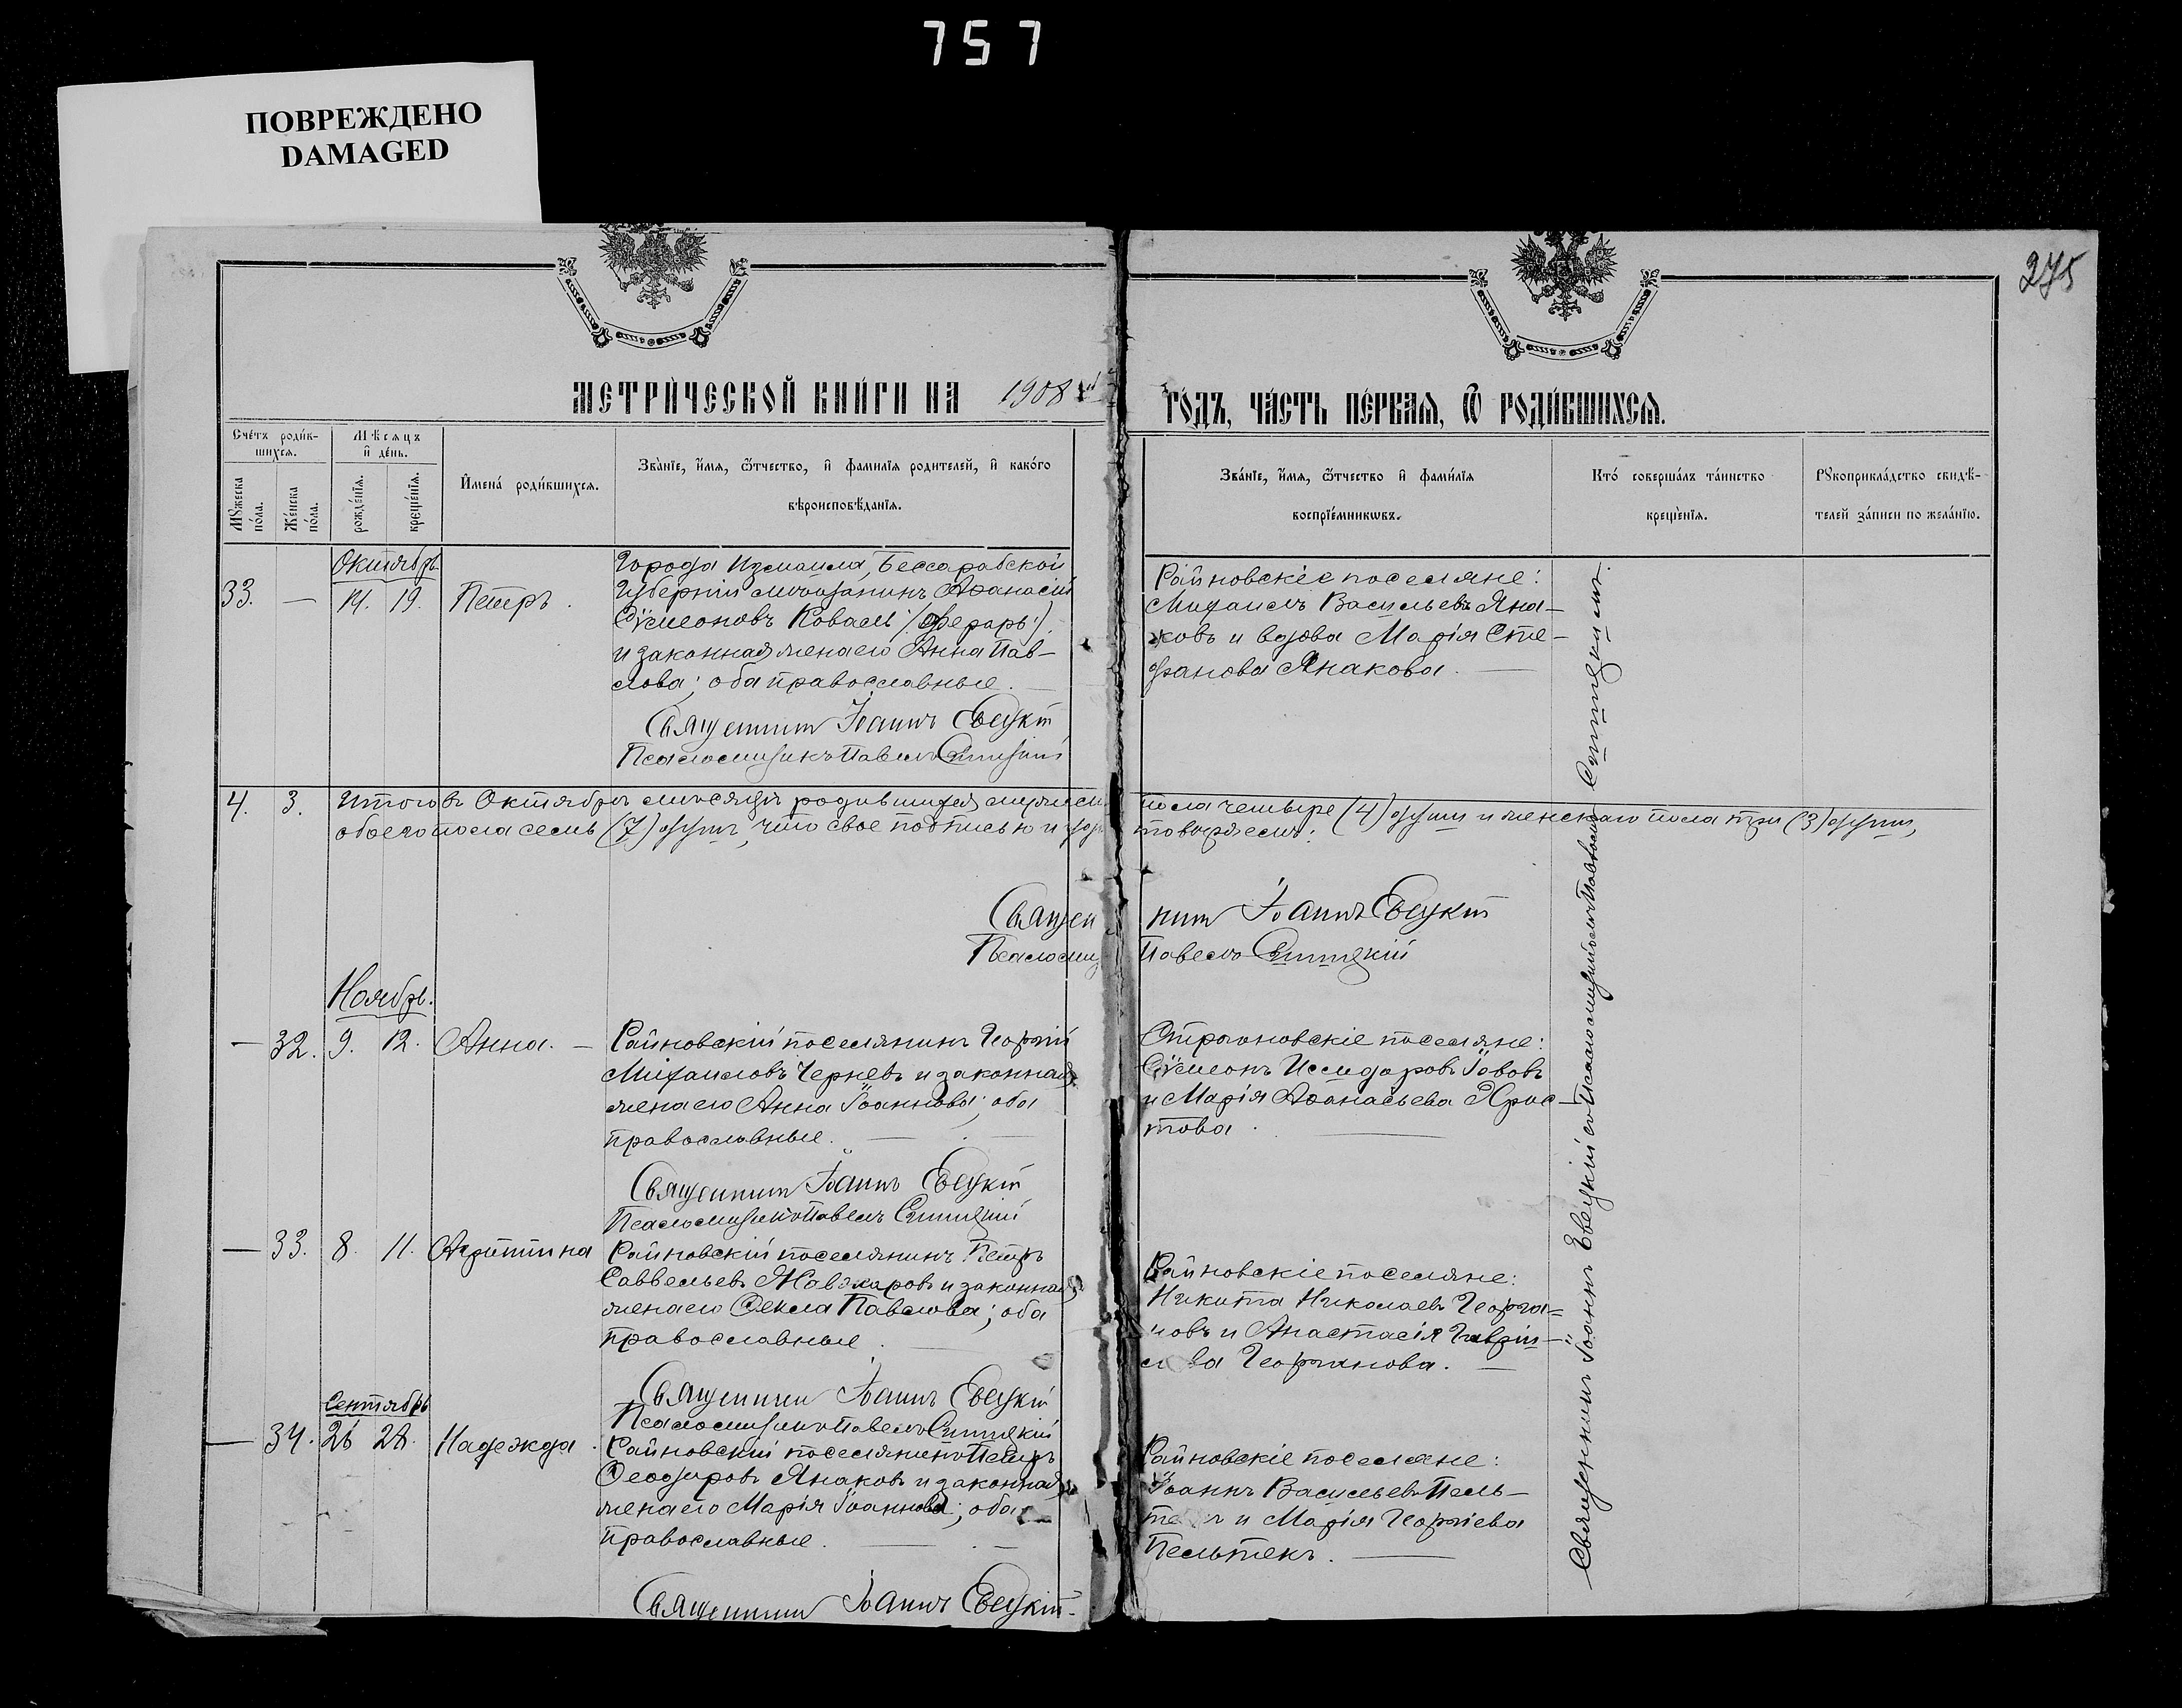 757
ПОВРЕЖДЕНО
DAMAGED
275
МЕТРИ́ЧЕСКОЙ КНИ́ГИ НА 1908 й
ГО́ДЪ, ЧА́СТЬ ПЕ́РВАЯ, Ѿ РОДИ́ВШИХСЯ.
Сче́тъ роди́в-
шихся.
Мѣсяцъ
и де́нь.
Мꙋжеска
по́ла.
Же́нска
по́ла.
рожде́нїя.
креще́нїя.
Имена́ роди́вшихся.
Зва́нїе, и́мя, ѻ́тчество, и фамилїя родителей, и како́го
вѣроисповѣ́данїя.
Зва́нїе, и́мя, ѻ́тчество и фами́лїя
воспрїе́мникωвъ.
Кто́ соверша́лъ та́инство
креще́нїя.
Рꙋкоприкла́дство свидѣ́-
телей за́писи по жела́нїю.
Октябрь
33. — 14. 19. Петръ.
Города Измаила, Бессарабской
Губернiи мѣщанинъ Аѳанасiй
Сѵмеоновъ Коваль /:Ферарь:/
и законная жена его Анна Пав-
лова; оба православные.
Священникъ Іоаннъ Евецкiй
Псаломщикъ Павелъ Синицкiй
Райновскiе поселяне:
Михаилъ Васильевъ Яна-
ковъ и вдова Марiя Сте-
фанова Янакова.
4. 3. Итого въ Октябрѣ мѣсяцѣ родившихся мужеск пола четыре (4) души и женскаго пола три (3) души,
обоего пола семь (7) душъ, что свое подписью и удо товѣряемъ:
Священ никъ Іоаннъ Евецкiй
Псаломщ Павелъ Синицкiй
Ноябрь.
— 32. 9. 12. Анна.
Райновскiй поселянинъ Георгiй
Михаиловъ Черневъ и законная
жена его Анна Іоаннова; оба
православные.
Священникъ Іоаннъ Евецкiй
Псаломщикъ Павелъ Синицкiй
Сѵмеонъ Исидоровъ Іововъ
и Марiя Аѳанасьева Хрис-
това.
— 33. 8. 11. Агриппина
Райновскiй поселянинъ Петръ
Саввельевъ и законная
жена его Ѳекла Павлова; оба
православные.
Священникъ Іоаннъ Евецкiй
Псаломщикъ Павелъ Синицкiй
Райновскiе поселяне:
Никита Николаевъ Георгiа=
новъ и Анастасiя Гаврiи-
л ва Георгiанова.
Сентябрь
— 34. 26 28. Надежда.
Райновскiй поселянинъ Петръ
Ѳеодоровъ Янаковъ и законная
жена его Марiя Іоаннова; оба
православные.
Священникъ Іоаннъ Евецкiй
Райновскiе поселяне:
Іоаннъ Васильевъ Пель-
те ъ и Марiя Георгiева
Пельтекъ.
Священникъ Іоаннъ Евецкiй съ Псаломщикомъ Павломъ Синицкимъ.